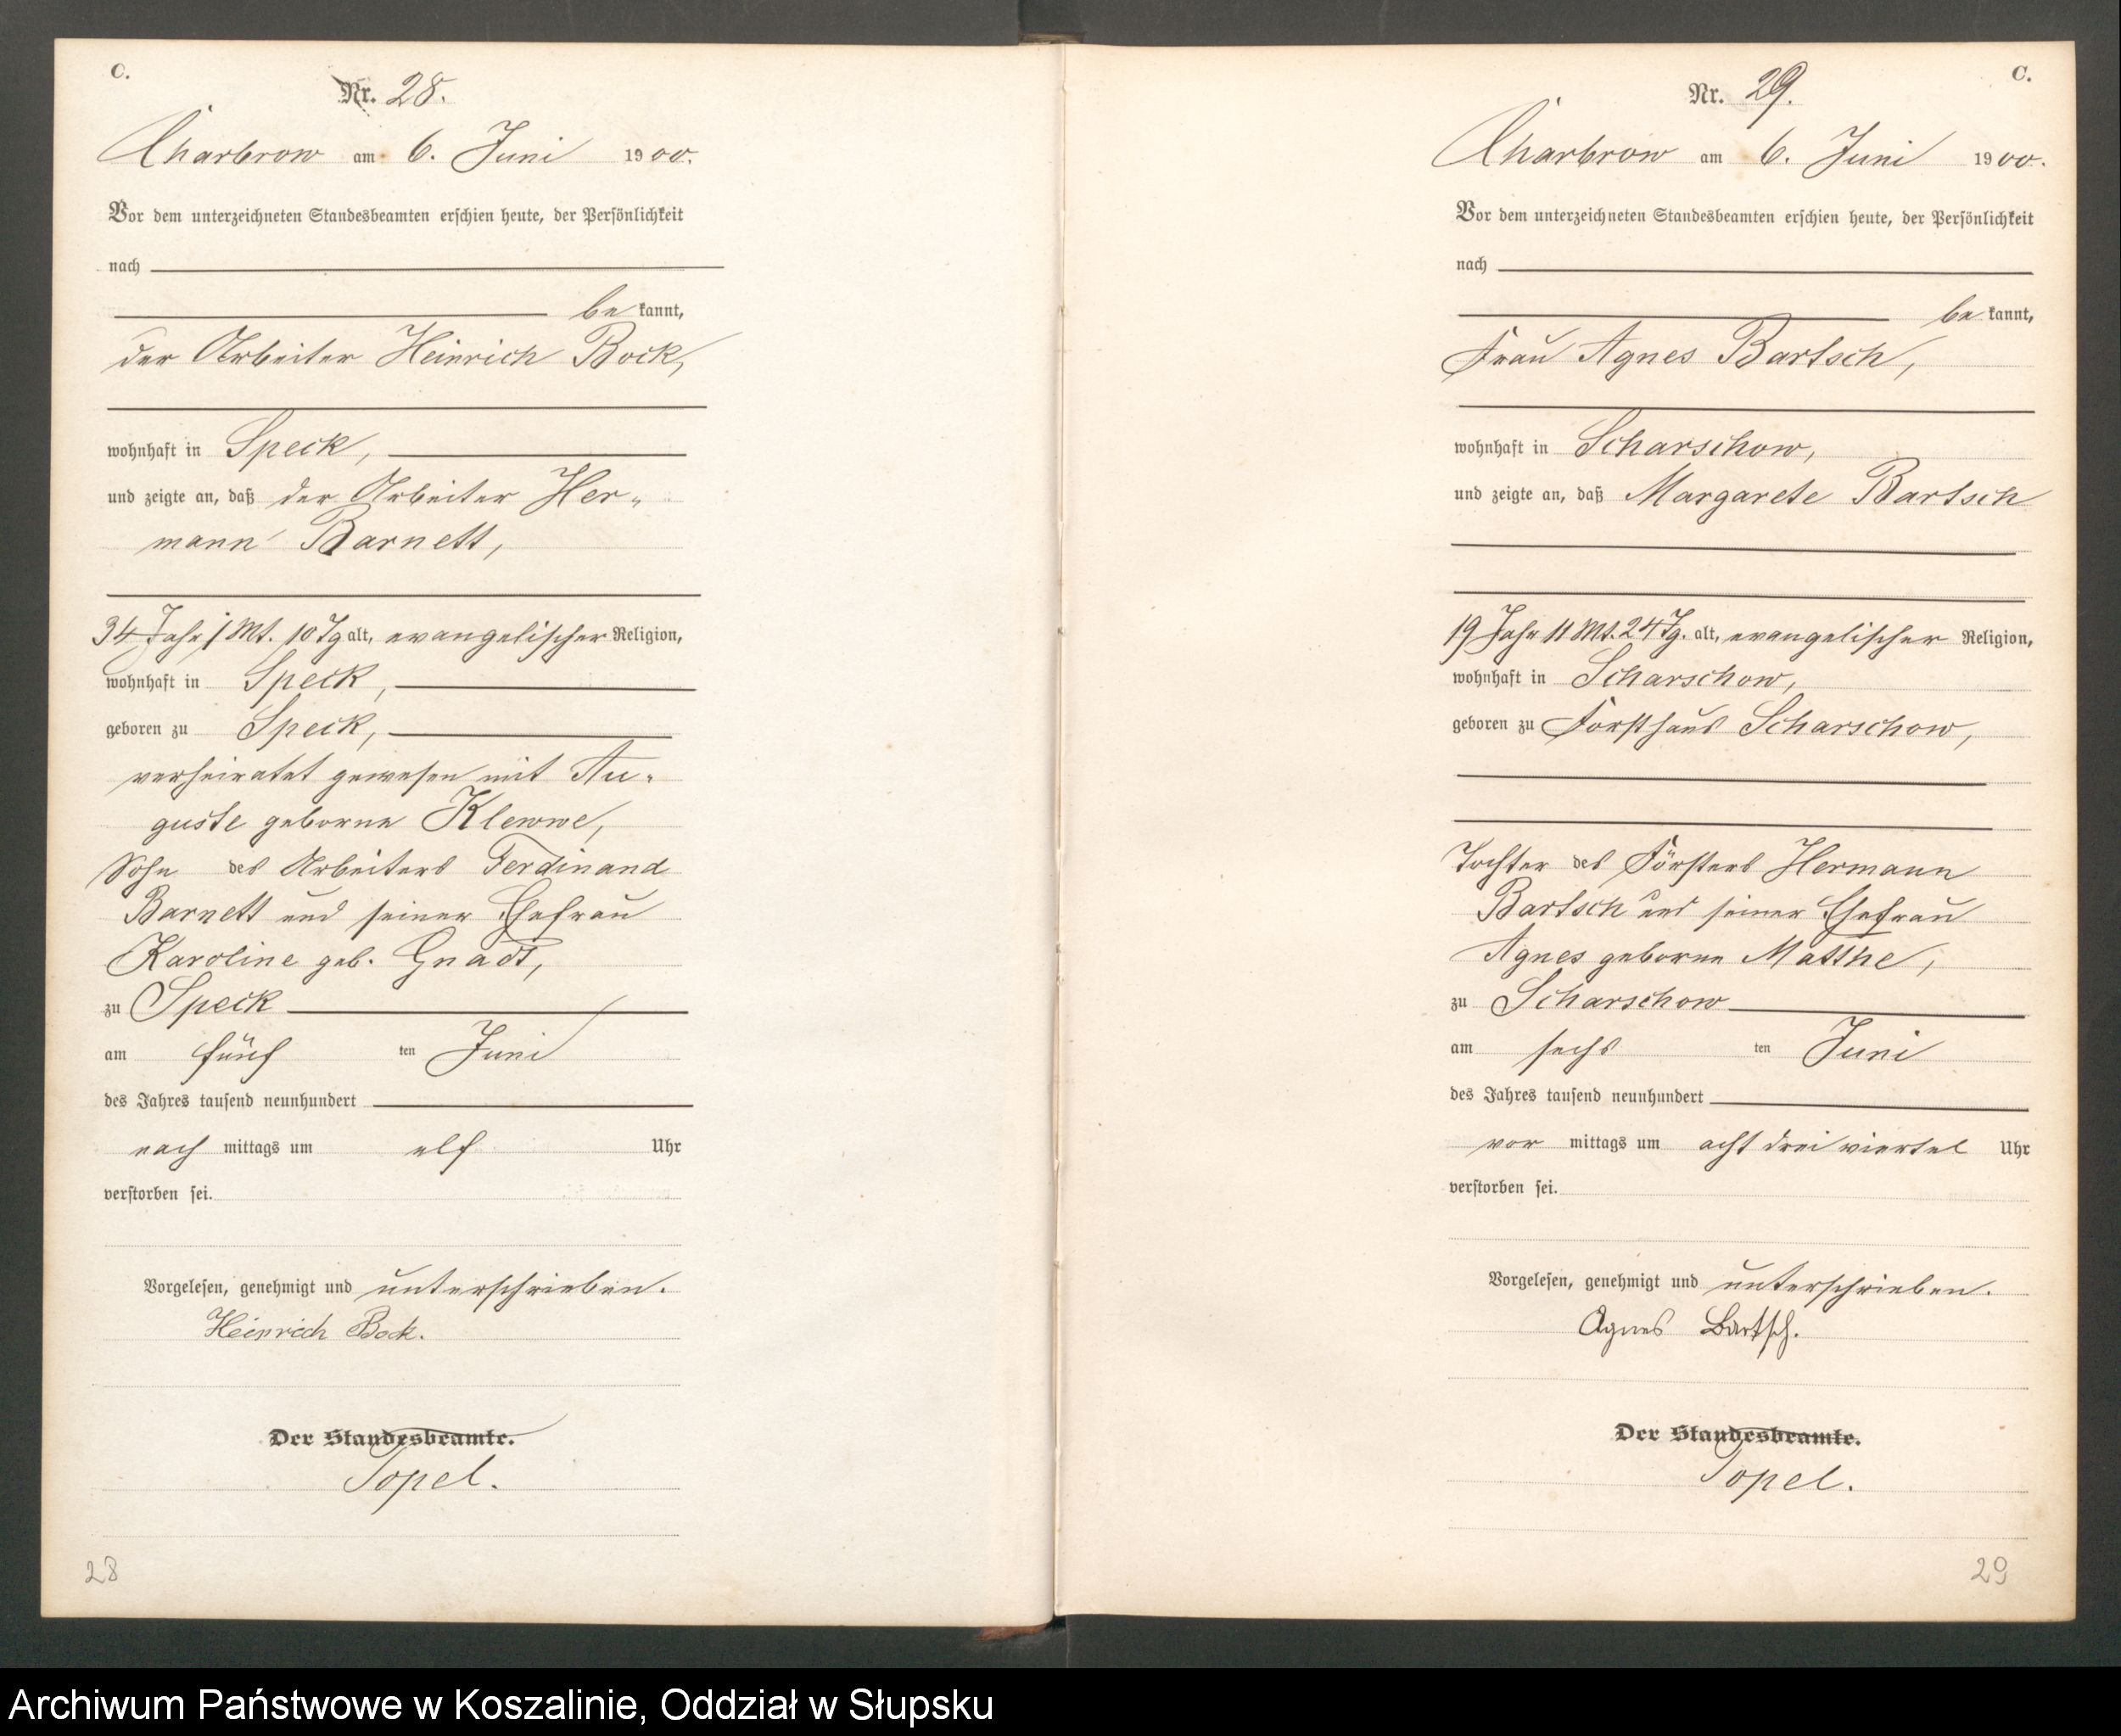 C.
Nr. 28.
Charbrow am 6. Juni 1900.
Vor dem unterzeichneten Standesbeamten erschien heute, der Persönlichkeit
nach
be kannt,
der Arbeiter Heinrich Bock,
wohnhaft in Speck,
und zeigte an, daß der Arbeiter Her-
mann Barnett,
34 Jahr 1 Mt. 10 Tg alt, evangelischer Religion,
wohnhaft in Speck,
geboren zu Speck,
verheiratet gewesen mit Au-
guste geborne Klewwe,
Sohn des Arbeiters Ferdinand
Barnett und seiner Ehefrau
Karoline geb. Gnadt,
zu Speck
am fünf ten Juni
des Jahres tausend neunhundert
nach mittags um elf Uhr
verstorben sei.
Vorgelesen, genehmigt und unterschrieben.
Heinrich Bock.
Der Standesbeamte.
Topel.
28
C.
Nr. 29.
Charbrow am 6. Juni 1900.
Vor dem unterzeichneten Standesbeamten erschien heute, der Persönlichkeit
nach
be kannt,
Frau Agnes Bartsch,
wohnhaft in Scharschow,
und zeigte an, daß Margarete Bartsch
19 Jahr 11 Mt. 24 Tg. alt, evangelischer Religion,
wohnhaft in Scharschow,
geboren zu Forsthaus Scharschow,
Tochter des Försters Hermann
Bartsch und seiner Ehefrau
Agnes geborne Matthe,
zu Scharschow
am sechs ten Juni
des Jahres tausend neunhundert
vor mittags um acht drei viertel Uhr
verstorben sei.
Vorgelesen, genehmigt und unterschrieben.
Agnes Bartsch.
Der Standesbeamte.
Topel.
29
Archiwum Państwowe w Koszalinie, Oddział w Słupsku